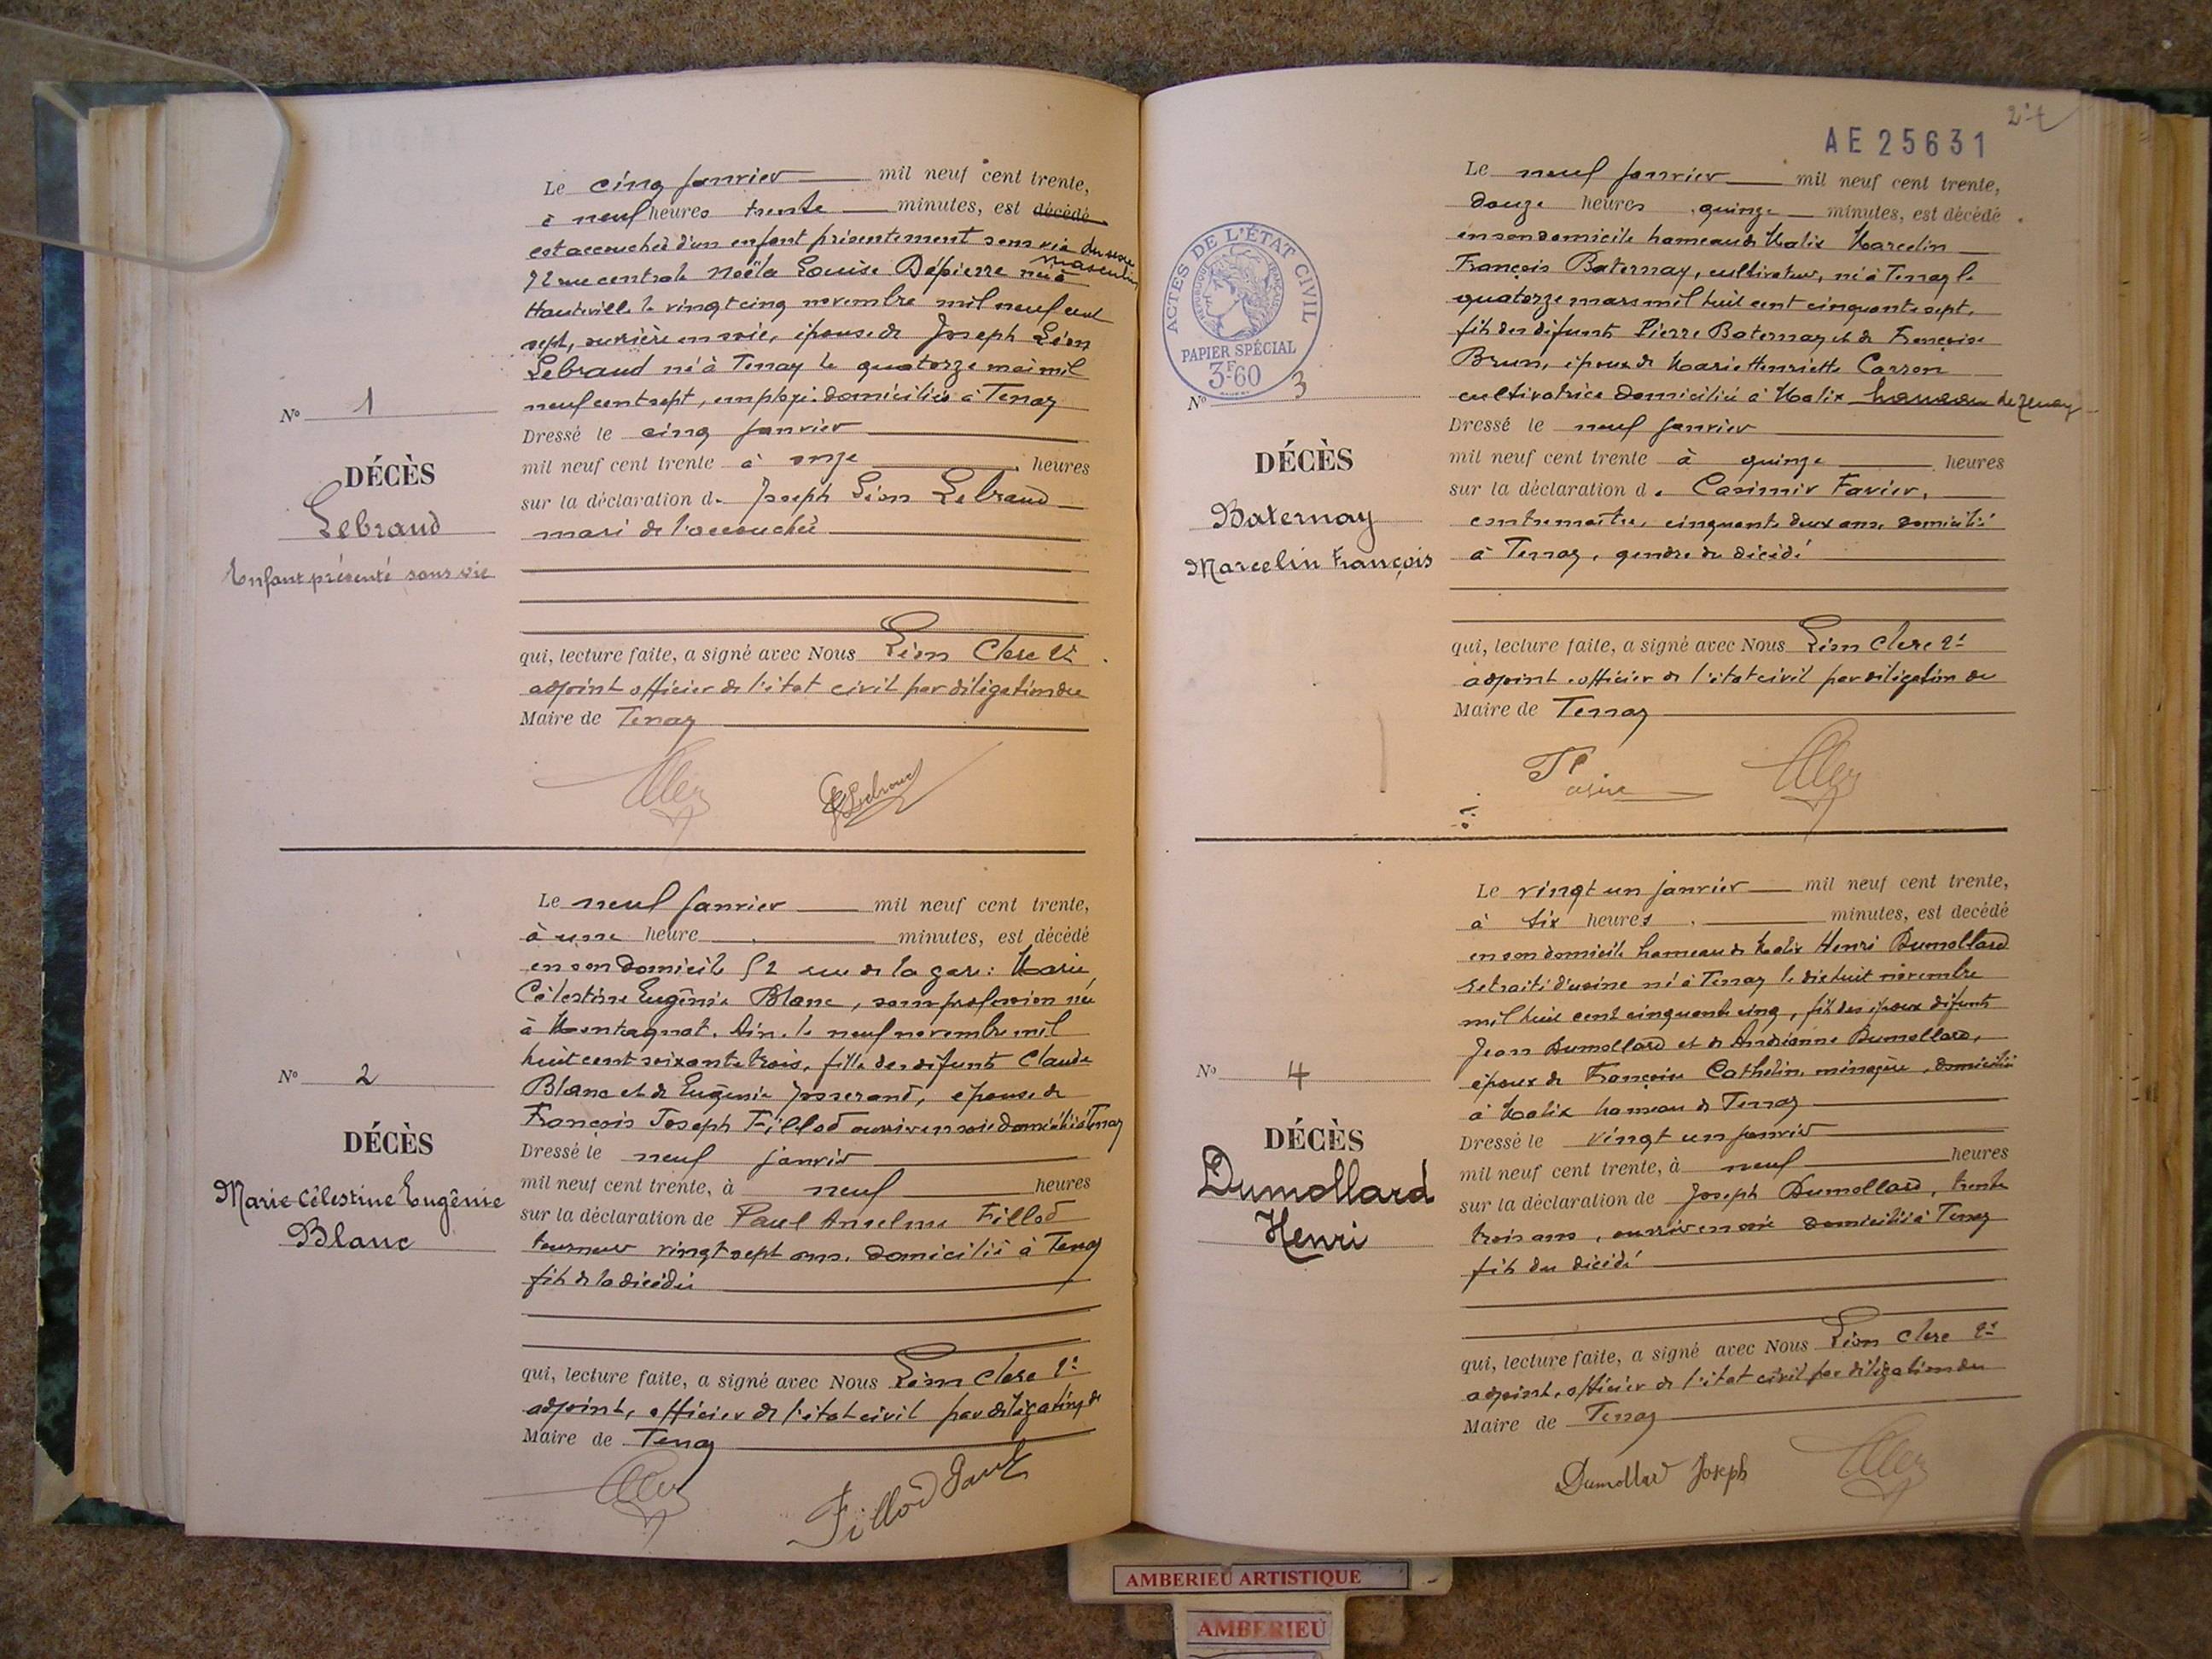 Le cinq Janvier mil neuf cent trente,
à neuf heures trente minutes, est décédé
est accouchée d'un enfant présentement sans vie du sexe
masculin
72 rue centrale Noëla Louise Dépierre née à
Hauteville le vingt cinq novembre mil neuf cent
sept, ouvrière en soie, épouse de Joseph Léon
Lebraud né à Tenay le quatorze mai mil
neuf cent sept, employé. domiciliés à Tenay
Nº 1
DÉCÈS
Lebraud
Enfant présenté sans vie
Dressé le cinq Janvier
mil neuf cent trente à onze heures
sur la déclaration de Joseph Léon Lebraud
mari de l'accouchée
qui, lecture faite, a signé avec Nous Léon Clerc 2e
adjoint officier de l'état civil par délégation du
Maire de Tenay
Le neuf Janvier mil neuf cent trente,
à une heure minutes, est décédé
en son domicile 52 rue de la gare: Marie
Célestine Eugénie Blanc, sans profession née
à Montagnat. Ain. le neuf novembre mil
huit cent soixante trois, fille des défunts Claude
Blanc et de Eugénie Josserand, épouse de
François Joseph Fillod ouvrier en soie domiciliés à Tenay
Nº 2
DÉCÈS
Marie Célestine Eugénie
Blanc
Dressé le neuf janvier
mil neuf cent trente, à neuf heures
sur la déclaration de Paul Anselme Fillod
tourneur vingt sept ans. domicilié à Tenay
fils de la décédée
qui, lecture faite, a signé avec Nous Léon Clerc 2e
adjoint, officier de l'état civil par délégation du
Maire de Tenay
Fillod Paul
AE 25631
ACTES DE L'ÉTAT CIVIL
PAPIER SPÉCIAL
3F60
Le neuf Janvier mil neuf cent trente,
douze heures quinze minutes, est décédé
en son domicile hameau de Malix Marcelin
François Baternay, cultivateur, né à Tenay le
quatorze mars mil huit cent cinquante sept,
fils des défunts Pierre Baternay et de Françoise
Brun, époux de Marie Henriette Carron
cultivatrice domiciliée à Malix hameau de Tenay
Nº 3
DÉCÈS
Baternay
Marcelin François
Dressé le neuf Janvier
mil neuf cent trente à quinze heures
sur la déclaration de Casimir Favier,
contremaître, cinquante deux ans, domicilié
à Tenay, gendre du décédé
qui, lecture faite, a signé avec Nous Léon Clerc 2e
adjoint officier de l'état civil par délégation du
Maire de Tenay
Le vingt un janvier mil neuf cent trente,
à six heures minutes, est decédé
en son domicile hameau de Malix Henri Dumollard
retraité d'usine né à Tenay le dix huit novembre
mil huit cent cinquante cinq, fils des époux défunts
Jean Dumollard et de Andréanne Dumollard,
époux de Françoise Cathelin, ménagère, domiciliée
à Malix hameau de Tenay
Nº 4
DÉCÈS
Dumollard
Henri
Dressé le vingt un Janvier
mil neuf cent trente, à neuf heures
sur la déclaration de Joseph Dumollard, trente
trois ans, ouvrier en soie domicilié à Tenay
fils du décédé
qui, lecture faite, a signé avec Nous Léon Clerc 2e
adjoint, officier de l'état civil par délégation du
Maire de Tenay
Dumollard Joseph
AMBERIEU ARTISTIQUE
AMBERIEU